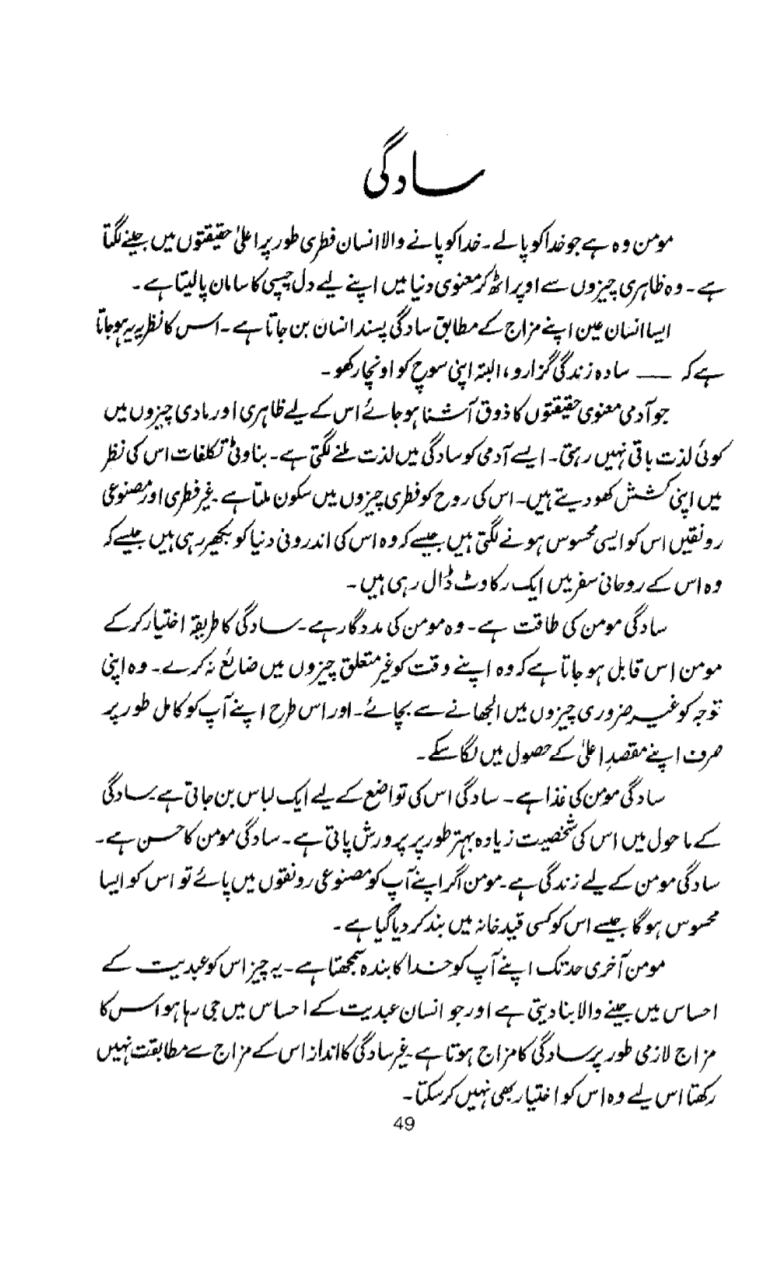 سادگی
مومن وہ ہے جو خدا کو پالے۔ خدا کو پانے والا انسان فطری طور پر اعلیٰ حقیقتوں میں جینے لگتا
ہے۔ وہ ظاہری چیزوں سے اوپر اٹھ کر معنوی دنیا میں اپنے لیے دل چسپی کا سامان پالیتا ہے۔
ایسا انسان عین اپنے مزاج کے مطابق سادگی پسند انسان بن جاتا ہے۔ اس کا نظریہ یہ ہو جاتا
ہے کہ ــــ سادہ زندگی گزارو، البتہ اپنی سوچ کو اونچا رکھو۔
جو آدمی معنوی حقیقتوں کا ذوق آشنا ہو جائے اس کے لیے ظاہری اور مادی چیزوں میں
کوئی لذت باقی نہیں رہتی۔ ایسے آدمی کو سادگی میں لذت ملنے لگتی ہے۔ بناوٹی تکلفات اس کی نظر
میں اپنی کشش کھو دیتے ہیں۔ اس کی روح کو فطری چیزوں میں سکون ملتا ہے۔ غیر فطری اور مصنوعی
رونقیں اس کو ایسی محسوس ہونے لگتی ہیں جیسے کہ وہ اس کی اندرونی دنیا کو بکھیر رہی ہیں جیسے کہ
وہ اس کے روحانی سفر میں ایک رکاوٹ ڈال رہی ہیں۔
سادگی مومن کی طاقت ہے۔ وہ مومن کی مددگار ہے۔ سادگی کا طریقہ اختیار کر کے
مومن اس قابل ہو جاتا ہے کہ وہ اپنے وقت کو غیر متعلق چیزوں میں ضائع نہ کرے۔ وہ اپنی
توجہ کو غیر ضروری چیزوں میں الجھانے سے بچائے۔ اور اس طرح اپنے آپ کو کامل طور پر
صرف اپنے مقصدِ اعلیٰ کے حصول میں لگا سکے۔
سادگی مومن کی غذا ہے۔ سادگی اس کی تواضع کے لیے ایک لباس بن جاتی ہے۔ سادگی
کے ماحول میں اس کی شخصیت زیادہ بہتر طور پر پرورش پاتی ہے۔ سادگی مومن کا حسن ہے۔
سادگی مومن کے لیے زندگی ہے۔ مومن اگر اپنے آپ کو مصنوعی رونقوں میں پائے تو اس کو ایسا
محسوس ہوگا جیسے اس کو کسی قید خانہ میں بند کر دیا گیا ہے۔
مومن آخری حد تک اپنے آپ کو خدا کا بندہ سمجھتا ہے۔ یہ چیز اس کو عبدیت کے
احساس میں جینے والا بنا دیتی ہے اور جو انسان عبدیت کے احساس میں جی رہا ہو اس کا
مزاج لازمی طور پر سادگی کا مزاج ہوتا ہے۔ غیر سادگی کا انداز اس کے مزاج سے مطابقت نہیں
رکھتا اس لیے وہ اس کو اختیار بھی نہیں کر سکتا۔
49